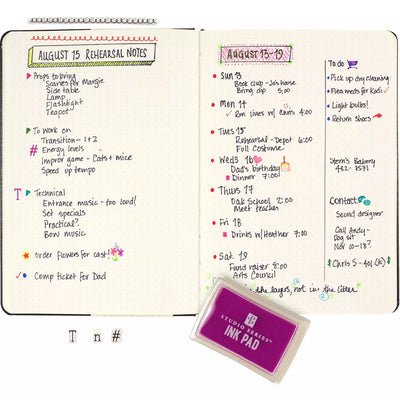 AUGUST 15 REHEARSAL NOTES
Props to bring
Scarves for Margie
Side table
Lamp
Flashlight
Teapot
To work on
Transition - 1+2
# Energy levels
Improv game - Cats + mice
Speed up tempo
T Technical
Entrance music - too loud!
Set specials
Practical?
Bow music
order flowers for cast!
✓ Comp ticket for Dad
T n #
AUGUST 13-19
Sun 13
Book club - Jo's house
Bring dip 5:00
Mon 14
Run lines w/ Chris 4:00
Tues 15
Rehearsal - Depot 6:00
Full Costume
Weds 16
Dad's birthday
Dinner 7:00!
Thurs 17
Oak School 2:00
Meet teachers
Fri 18
Drinks w/ Heather 7:00
Sat. 19
Fund raiser 8:00
Arts Council
the layers, not in the litter
To do
Pick up dry cleaning
Flea meds for Kadi
Light bulbs!
Return shoes
Stern's Bakery
432-
Contact
Sound designer
Call Andy -
Dog sit
Nov 10-18?
Chris S - 401 (k)
STUDIO SERIES™
INK PAD